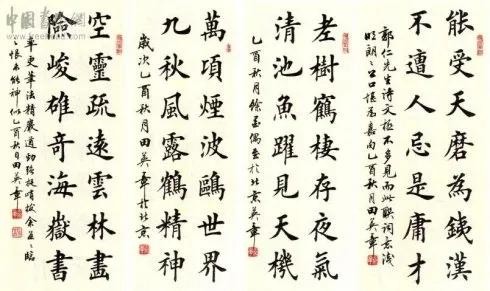 能受天磨為鐵漢
不遭人忌是庸才
先生诗文极不多見而此聯詞意浅
明朗上口堪為嘉尚乙酉秋月田英章
老樹鶴棲存夜氣
清池魚躍見天機
乙酉秋月於北京英章
萬頃煙波鷗世界
九秋風露鶴精神
歲次乙酉秋月田英章於北京
空靈疏遠雲林畫
險峻雄奇海嶽書
筆法精嚴遒勁
恨未能神似乙酉秋日田英章